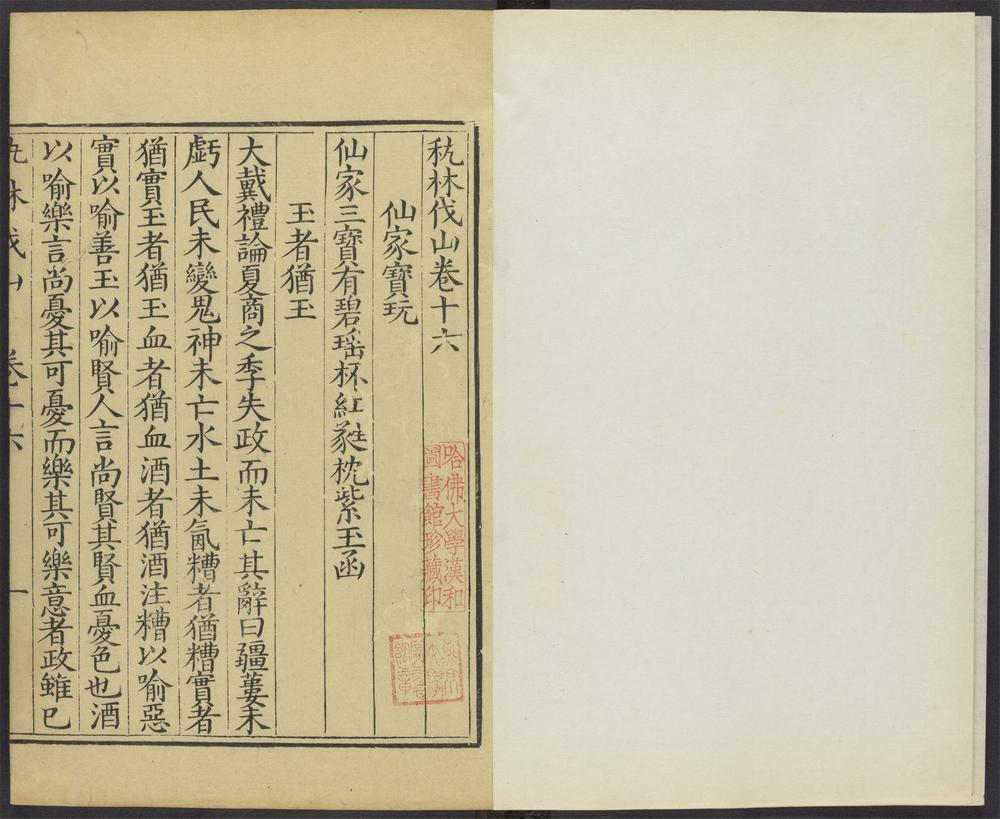 秇林伐山卷十六
仙家寶玩
仙家三寶有碧瑶杯紅蕤枕紫玉函
玉者猶玉
大戴禮論夏商之季失政而未亡其辭曰疆蔞未
虧人民未變鬼神未亡水土未氤糟者猶糟實者
猶實玉者猶玉血者猶血酒者猶酒注糟以喻惡
實以喻善玉以喻賢人言尚賢其賢血憂色也酒
以喻樂言尚憂其可憂而樂其可樂意者政雖巳
秇林伐山 卷十六 一
哈佛大學漢和
圖書館珍藏印